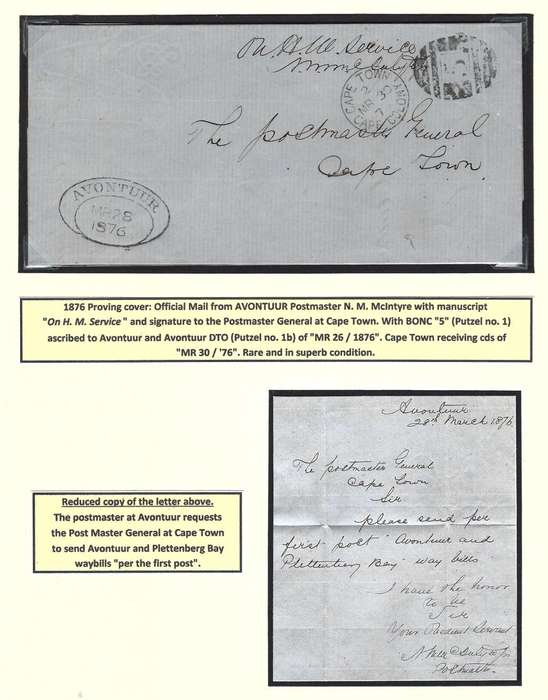 On H. M. Service
The Postmaster General
Cape Town
CAPE TOWN
2
MR 30
7
CAPE COLONY
5
AVONTUUR
MR 28
1876
1876 Proving cover: Official Mail from AVONTUUR Postmaster N. M. McIntyre with manuscript
"On H. M. Service" and signature to the Postmaster General at Cape Town. With BONC "5" (Putzel no. 1)
ascribed to Avontuur and Avontuur DTO (Putzel no. 1b) of "MR 26 / 1876". Cape Town receiving cds of
"MR 30 / '76". Rare and in superb condition.
Avontuur
28th March 1876
The postmaster General
Cape Town
Sir
please send per
first post "Avontuur and
Plettenberg Bay" way bills
I have the honor
to be
Sir
Your Obedient Servant
Postmaster
Reduced copy of the letter above.
The postmaster at Avontuur requests
the Post Master General at Cape Town
to send Avontuur and Plettenberg Bay
waybills "per the first post".